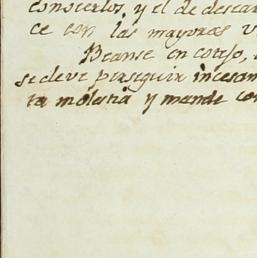 conocerlos, y el de descar
ce con las mayores v
Beanse en cotejo,
se deve perseguir incesam
ta molestia y mande con